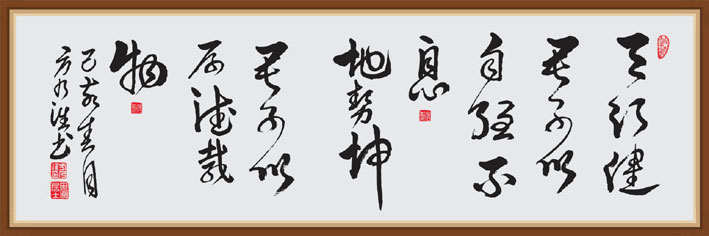 天行健
君子以
自強不
息
地勢坤
君子以
厚德載
物
己亥春月
方 書